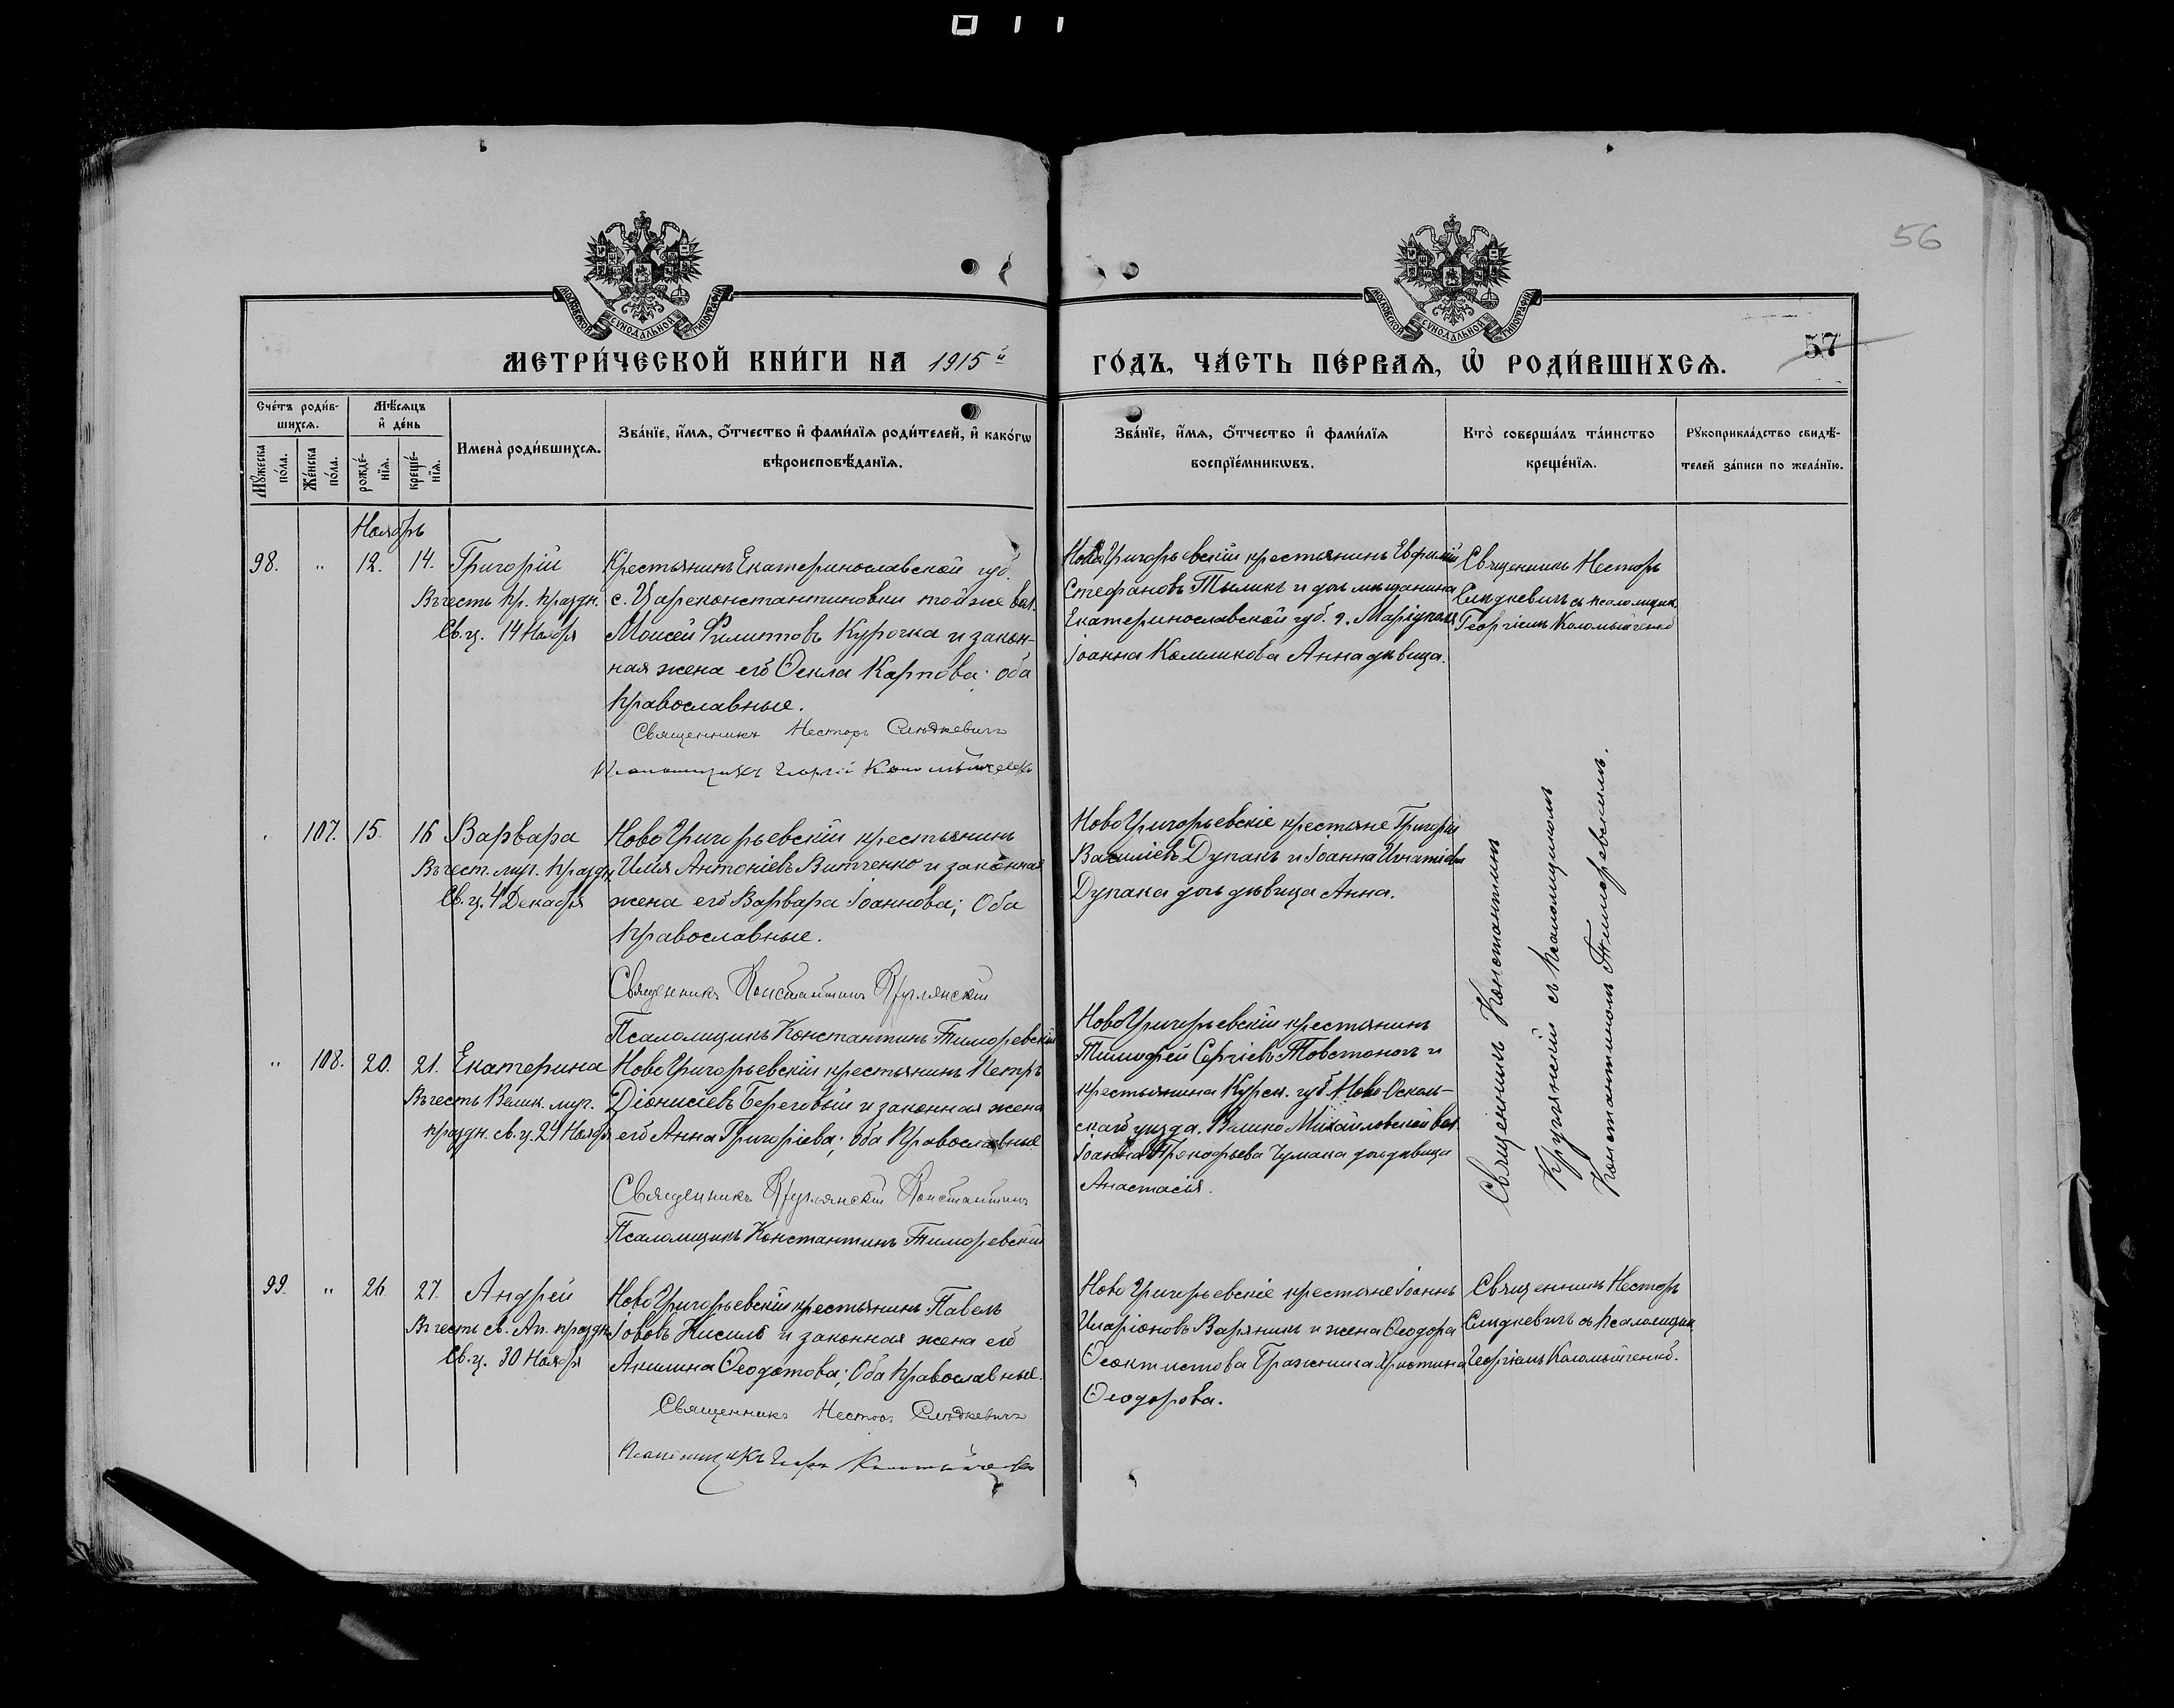 56
МОСКОВСКОЙ СУНОДАЛЬНОЙ ТИПОГРАФІИ
МОСКОВСКОЙ СУНОДАЛЬНОЙ ТИПОГРАФІИ
МЕТРИ́ЧЕСКОЙ КНИ́ГИ НА 1915й ГО́ДЪ, ЧА́СТЬ ПЕ́РВАѦ, Ѽ РОДИ́ВШИХСѦ.
57
Сче́тъ роди́в-
шихсѧ.
Мѣ́сѧцъ
и҆ де́нь
Мꙋ́жеска
по́ла.
Же́нска
по́ла.
рожде́-
нїѧ.
креще́-
нїѧ.
Имена̀ роди́вшихсѧ.
Зва́нїе, и҆́мѧ, ѻ҆́тчество и҆ фами́лїѧ роди́телей, и҆ како́гѡ
вѣроисповѣ́данїѧ.
Зва́нїе, и҆́мѧ, ѻ҆́тчество и҆ фами́лїѧ
воспрїе́мникѡвъ.
Кто̀ соверша́лъ та́инство
креще́нїѧ.
Рꙋкоприкла́дство свидѣ́-
телей за́писи по жела́нїю.
Ноябрь
98. " 12. 14. Григорій
Въ честь пр. праздн.
Св. ц. 14 Ноября
Крестьянинъ Екатеринославской губ.
с. Цареконстантиновки тойже вол.
Моисей Филипповъ Курочка и закон-
ная жена его Ѳекла Карпова; оба
православные.
Священникъ Несторъ Слюдкевичъ
Псаломщикъ Георгій
НовоГригорьевскій крестьянинъ Евфимій
Стефановъ и дочь мѣщанина
Екатеринославской губ. г. Маріуполя
Іоанна Анна дѣвица.
Священникъ Несторъ
Слюдкевичъ съ псаломщик.
Георгіемъ
" 107. 15. 16 Варвара
Въ чест. муч. праздн.
Св. ц. 4 Декабря
НовоГригорьевскій крестьянинъ
Илія Антоніевъ Витченко и законная
жена его Варвара Іоаннова; Оба
православные.
Священникъ Константинъ Круглянскій
Псаломщикъ Константинъ Тиморевскій
НовоГригорьевскіе крестьяне Григорій
Василіевъ Дупакъ и Іоанна Игнатіева
Дупака дочь дѣвица Анна.
Священникъ Константинъ
Круглянскій съ псаломщикомъ
Константиномъ Тиморевскимъ.
" 108. 20. 21. Екатерина
Въ честь Велик. муч.
праздн. св. ц. 24 Ноября
НовоГригорьевскій крестьянинъ Петръ
Діонисіевъ Береговый и законная жена
его Анна Григоріева; оба Православные
Священникъ Круглянскій Константинъ
Псаломщикъ Константинъ Тиморевскій
НовоГригорьевскій крестьянинъ
Тимофей Сергіевъ Товстоногъ и
крестьянина Курск. губ. Ново-Осколь-
скаго уѣзда. Велико Михайловской вол.
Іоанна Прокофьева Чумака дочь дѣвица
Анастасія.
99. " 26. 27. Андрей
Въ честь св. Ап. праздн.
Св. ц. 30 Ноября
НовоГригорьевскій крестьянинъ Павелъ
Іововъ Кисиль и законная жена его
Акилина Ѳеодотова; Оба православные.
Священникъ Несторъ Слюдкевичъ
НовоГригорьевскіе крестьяне Іоаннъ
Иларіоновъ Варяникъ и жена Ѳеодора
Ѳеоктистова Христина
Ѳеодорова.
Священникъ Несторъ
Слюдкевичъ съ псаломщик.
Георгіемъ